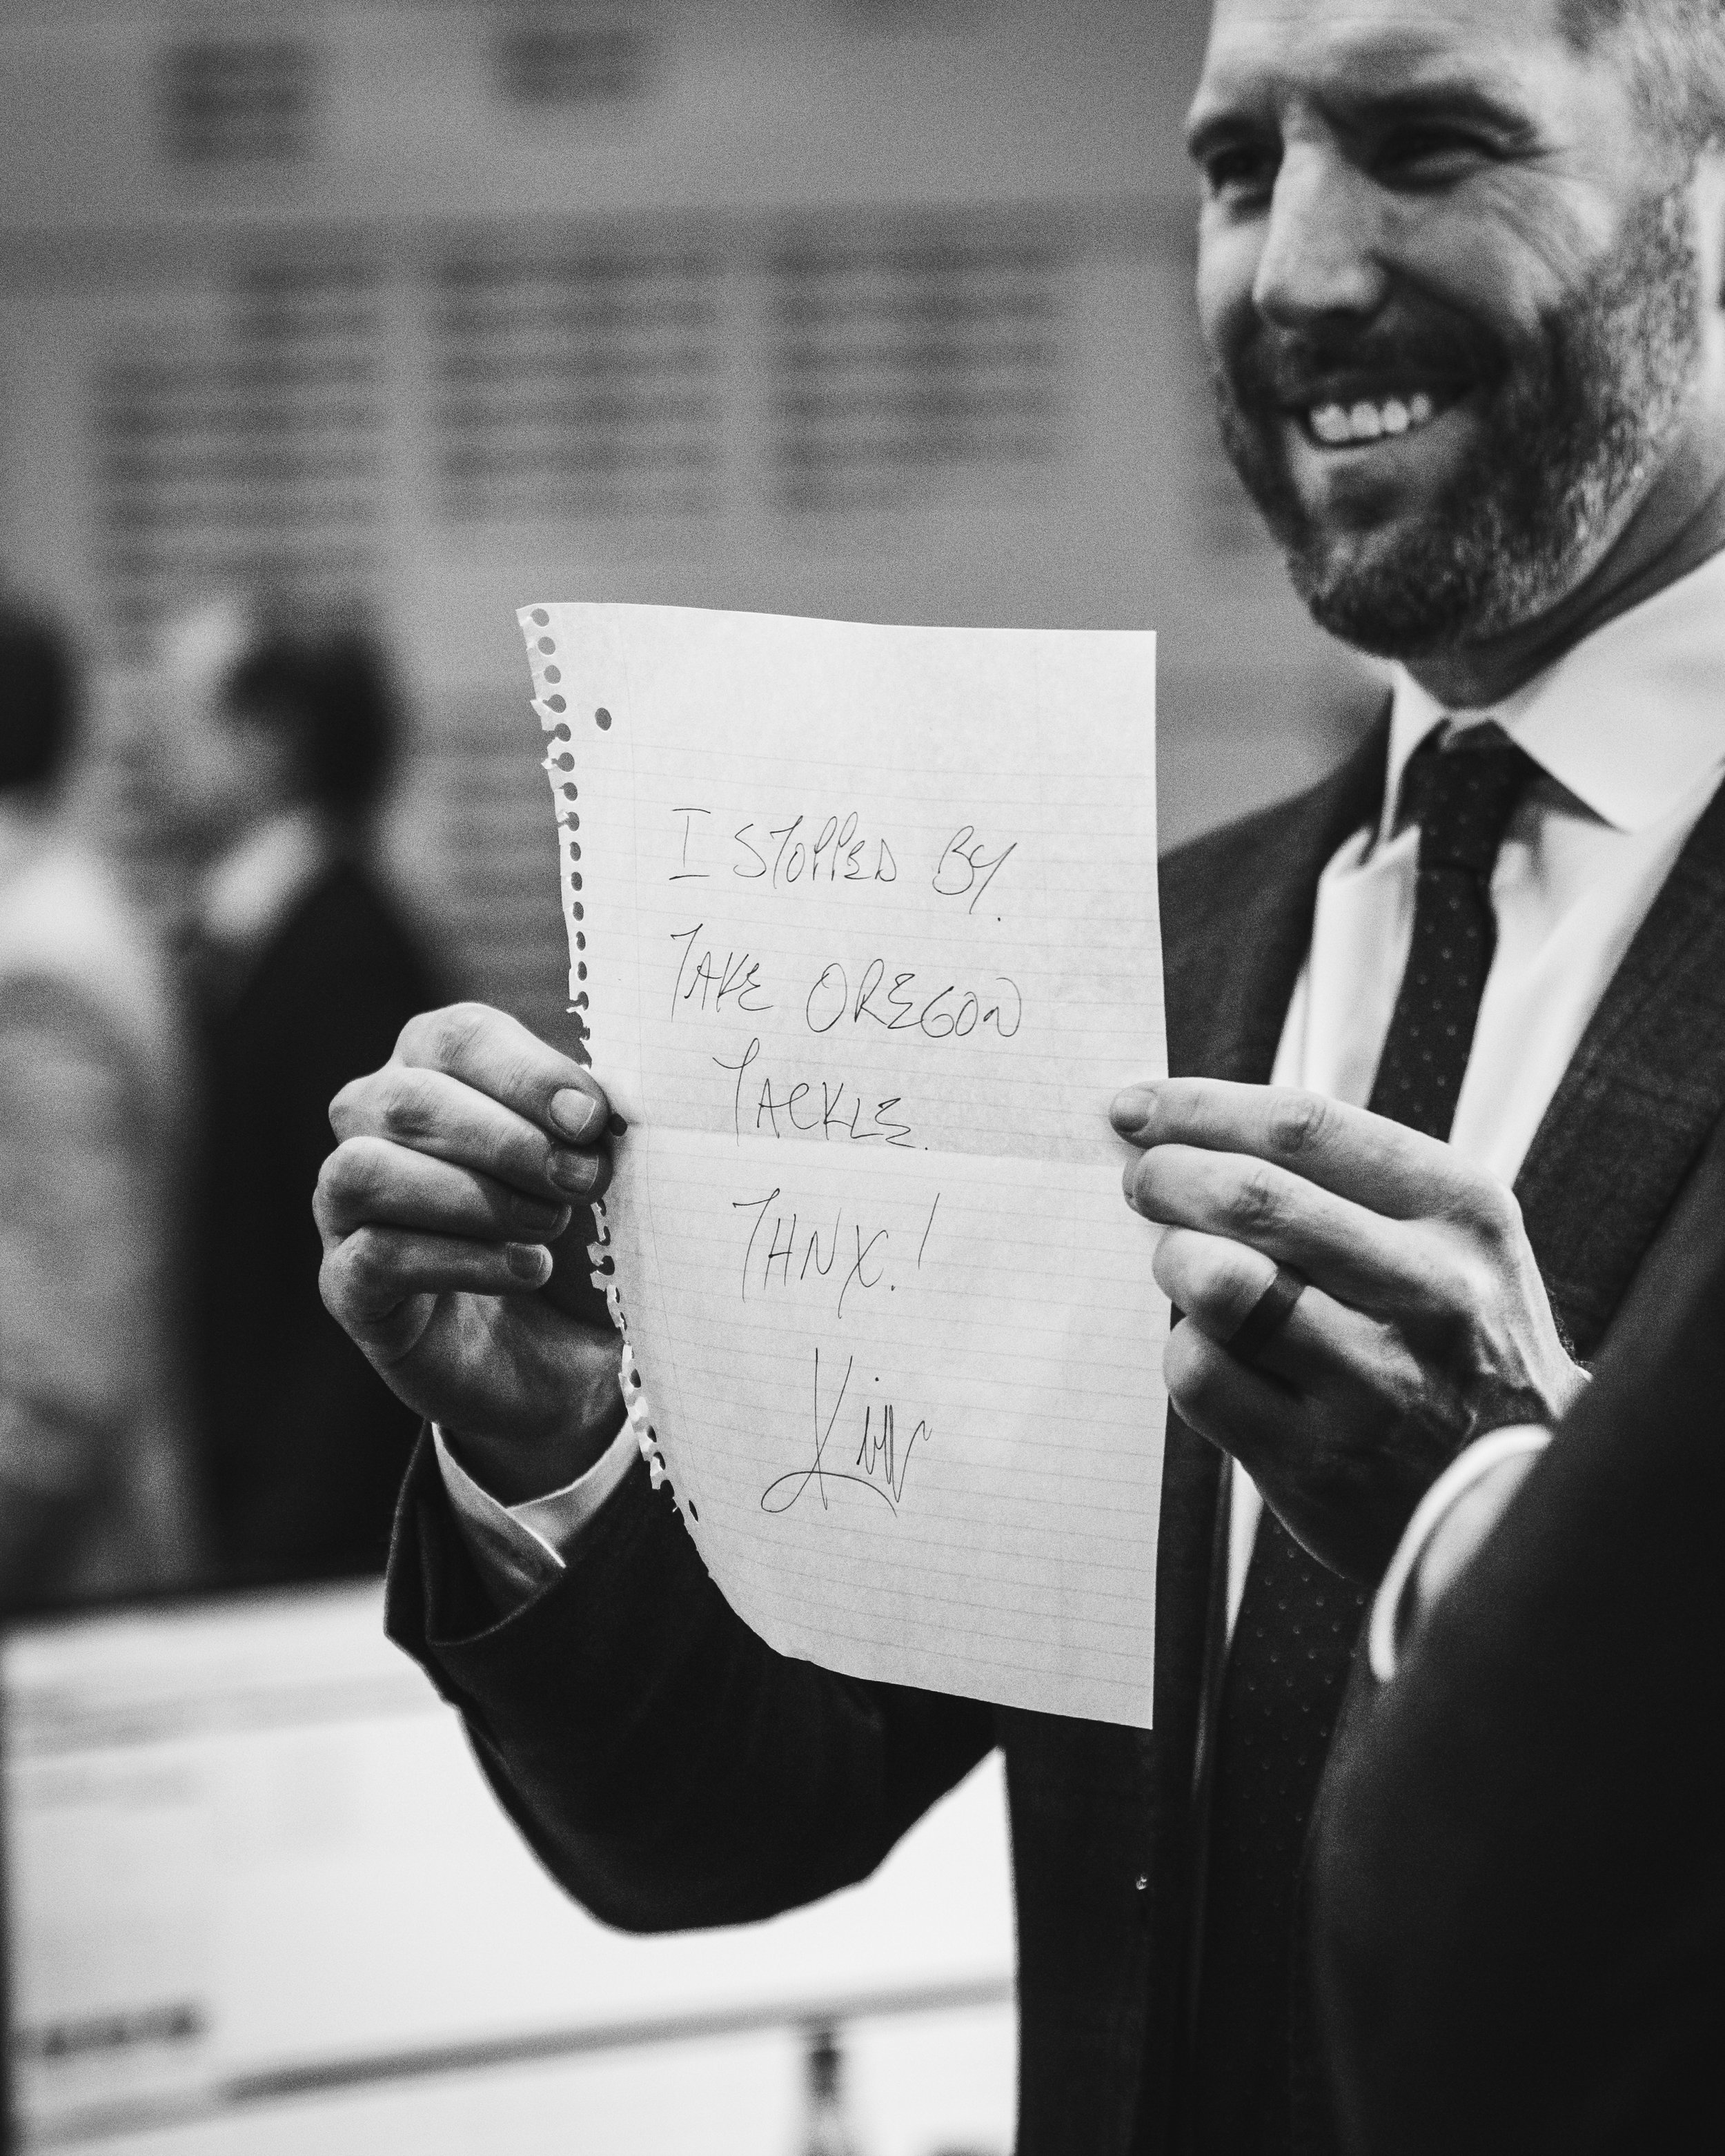 I STOPPED BY.
TAKE OREGON
TACKLE.
THNX.!